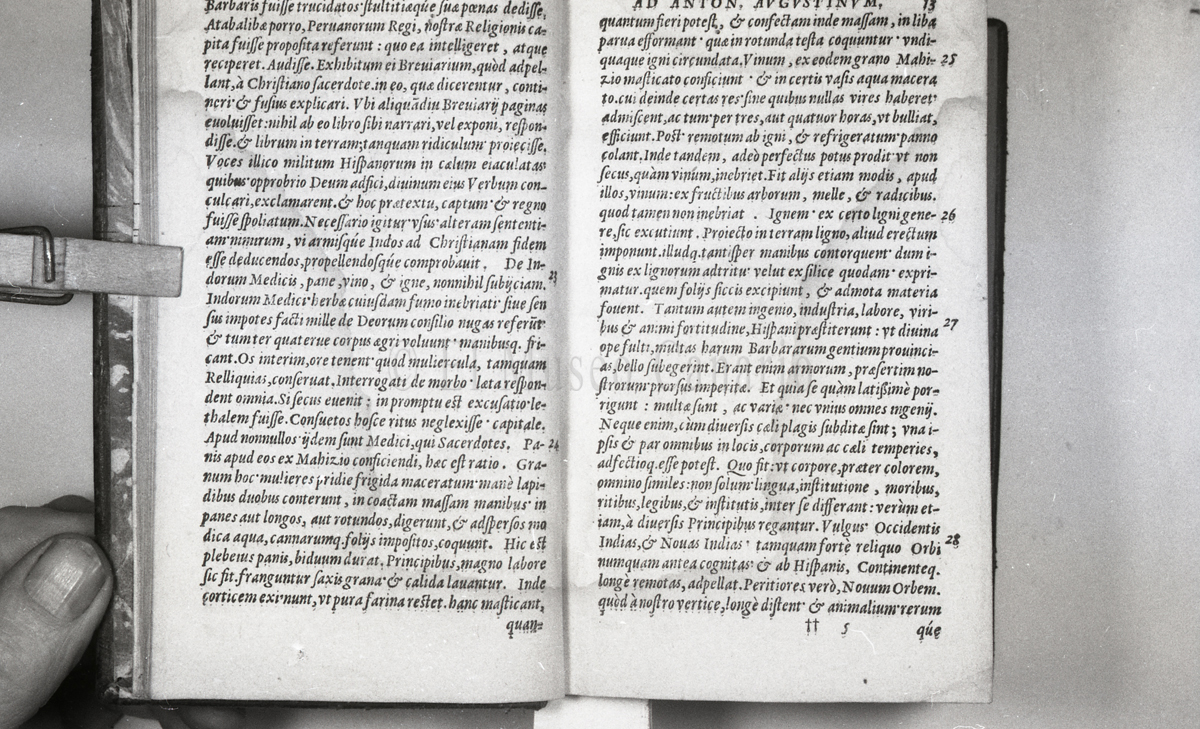 Barbaris fuisse trucidatos: stultitiæque suæ pœnas dedisse.
Atabalibæ porro, Peruanorum Regi, nostræ Religionis ca-
pita fuisse proposita referunt: quo ea intelligeret, atque
reciperet. Audisse. Exhibitum ei Breuiarium, quòd adpel-
lant, à Christiano sacerdote. in eo, quæ dicerentur, conti-
neri & fusius explicari. Vbi aliquãdiu Breuiarij paginas
euoluisset: nihil ab eo libro sibi narrari, vel exponi, respon-
disse. & librum in terram, tanquam ridiculum proiecisse.
Voces illico militum Hispanorum in cælum eiaculatas
quibus opprobrio Deum adfici, diuinum eius Verbum con-
culcari, exclamarent. & hoc prætextu, captum & regno
fuisse spoliatum. Necessario igitur vsus alteram sententi-
am nimirum, vi armisque Indos ad Christianam fidem
esse deducendos, propellendosque comprobauit. De In-
dorum Medicis, pane, vino, & igne, nonnihil subijciam. 23
Indorum Medici herbæ cuiusdam fumo inebriati siue sen
sus impotes facti mille de Deorum consilio nugas referũt
& tum ter quaterue corpus ægri voluunt manibusq. fri-
cant. Os interim, ore tenent quod muliercula, tamquam
Relliquias, conseruat. Interrogati de morbo læta respon-
dent omnia. Si secus euenit: in promptu est excusatio le-
thalem fuisse. Consuetos hosce ritus neglexisse capitale.
Apud nonnullos ijdem sunt Medici, qui Sacerdotes. Pa- 24
nis apud eos ex Mahizio conficiendi, hæc est ratio. Gra-
num hoc mulieres pridie frigida maceratum manè lapi-
dibus duobus conterunt, in coactam massam manibus in
panes aut longos, aut rotundos, digerunt, & adspersos mo
dica aqua, cannarumq. folijs impositos, coquunt. Hic est
plebeius panis, biduum durat. Principibus, magno labore
sic fit. franguntur saxis grana & calida lauantur. Inde
corticem eximunt, vt pura farina restet. hanc masticant,
quan-
AD ANTON. AVGVSTINVM. 13
quantum fieri potest, & confectam inde massam, in liba
parua efformant quæ in rotunda testa coquuntur vndi-
quaque igni circundata. Vinum, ex eodem grano Mahi- 25
zio masticato conficiunt & in certis vasis aqua macera
to. cui deinde certas res sine quibus nullas vires haberet
admiscent, ac tum per tres, aut quatuor horas, vt bulliat,
efficiunt. Post remotum ab igni, & refrigeratum panno
colant. Inde tandem, adeò perfectus potus prodit vt non
secus, quàm vinum, inebriet. Fit alijs etiam modis, apud
illos, vinum: ex fructibus arborum, melle, & radicibus.
quod tamen non inebriat. Ignem ex certo ligni gene- 26
re, sic excutiunt. Proiecto in terram ligno, aliud erectum
imponunt. illudq. tantisper manibus contorquent dum i-
gnis ex lignorum adtritu velut ex silice quodam expri-
matur. quem folijs siccis excipiunt, & admota materia
fouent. Tantum autem ingenio, industria, labore, viri-
bus & animi fortitudine, Hispani præstiterunt: vt diuina 27
ope fulti, multas harum Barbararum gentium prouinci-
as, bello subegerint. Erant enim armorum, præsertim no-
strorum prorsus imperitæ. Et quia se quàm latißimè por-
rigunt: multæ sunt, ac variæ nec vnius omnes ingenij.
Neque enim, cùm diuersis cæli plagis subditæ sint; vna i-
psis & par omnibus in locis, corporum ac cæli temperies,
adfectioq. esse potest. Quo fit: vt corpore, præter colorem,
omnino similes: non solùm lingua, institutione, moribus,
ritibus, legibus, & institutis, inter se differant: verùm et-
iam, à diuersis Principibus regantur. Vulgus Occidentis
Indias, & Nouas Indias tamquam fortè reliquo Orbi 28
numquam antea cognitas & ab Hispanis, Continenteq.
longè remotas, adpellat. Peritiores verò, Nouum Orbem.
quòd à nostro vertice, longè distent & animalium rerum
†† 5 qúe